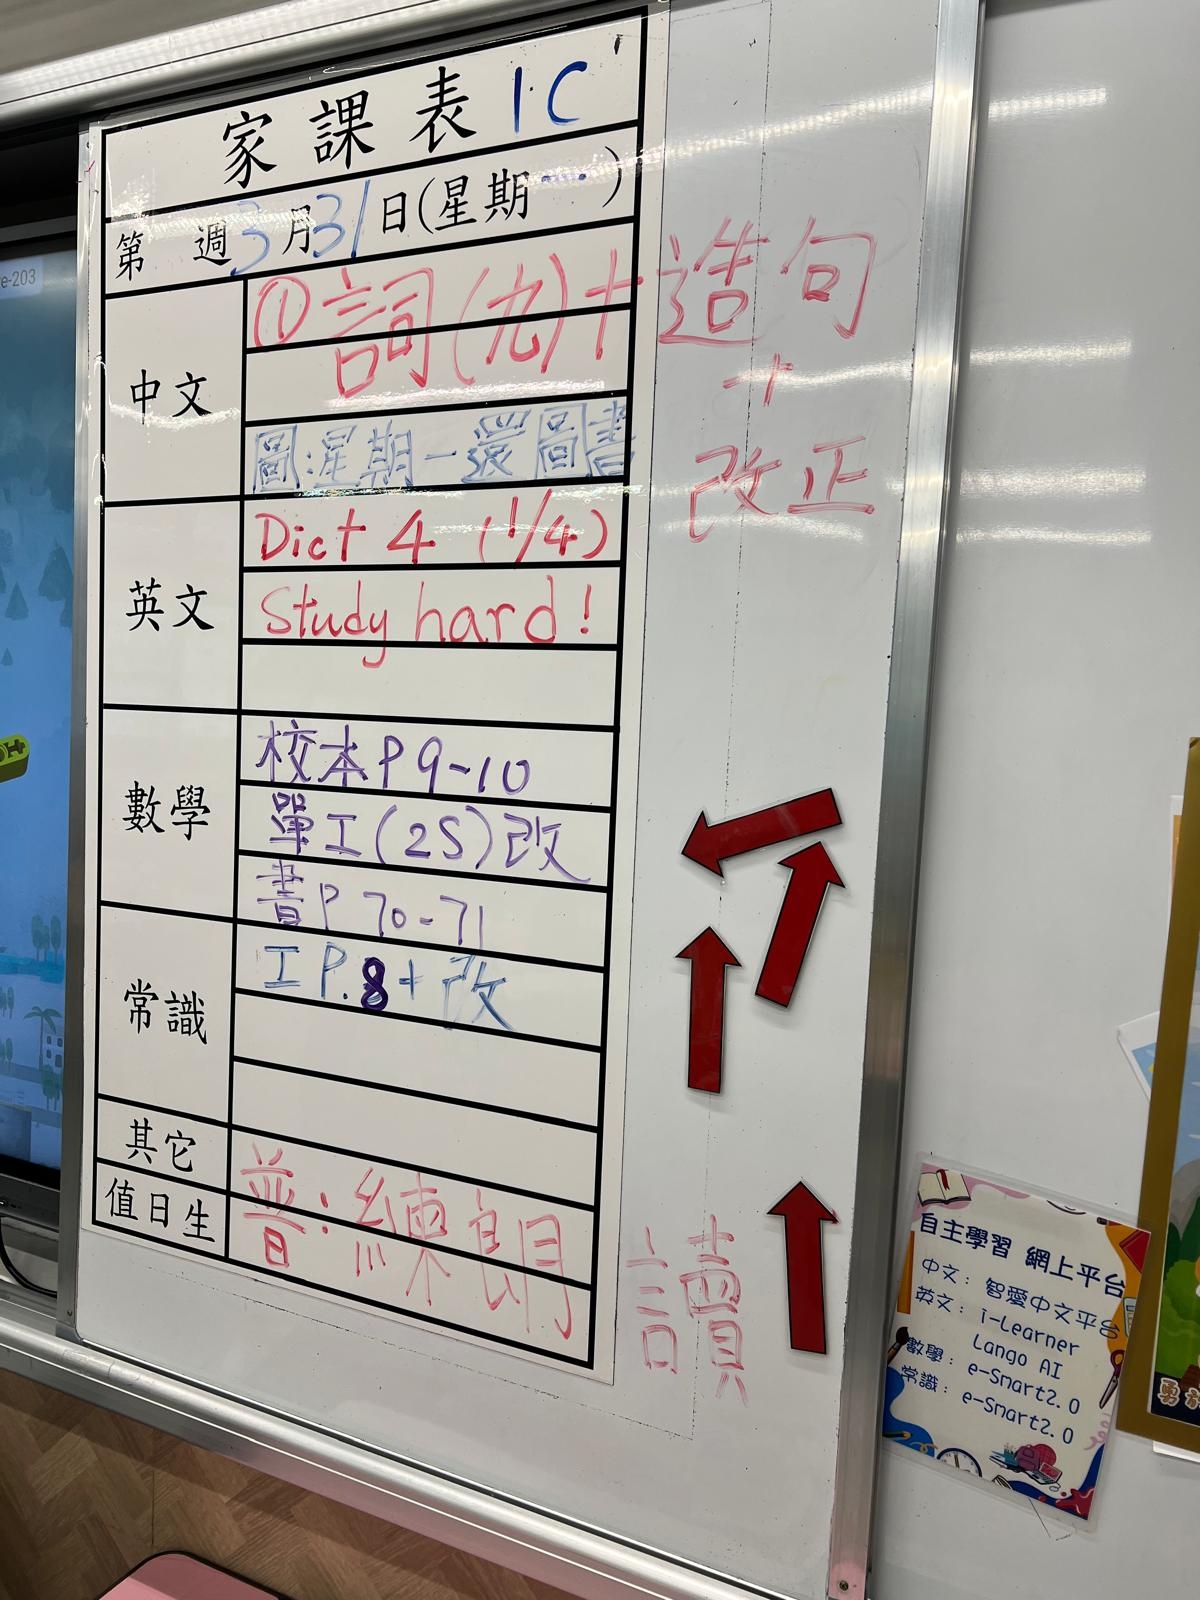 家課表 1C
第 週 3月31日(星期 )
中文
① 詞(九)+造句
+
改正
圖:星期一還圖書
英文
Dict 4 (1/4)
Study hard!
數學
校本P 9-10
單工(25)改
書P 70-71
常識
工P.8+改
其它
值日生
普:練朗讀
自主學習 網上平台
中文: 智愛中文平台
英文: i-Learner
Lango AI
數學: e-Smart2.0
常識: e-Smart2.0
e-203